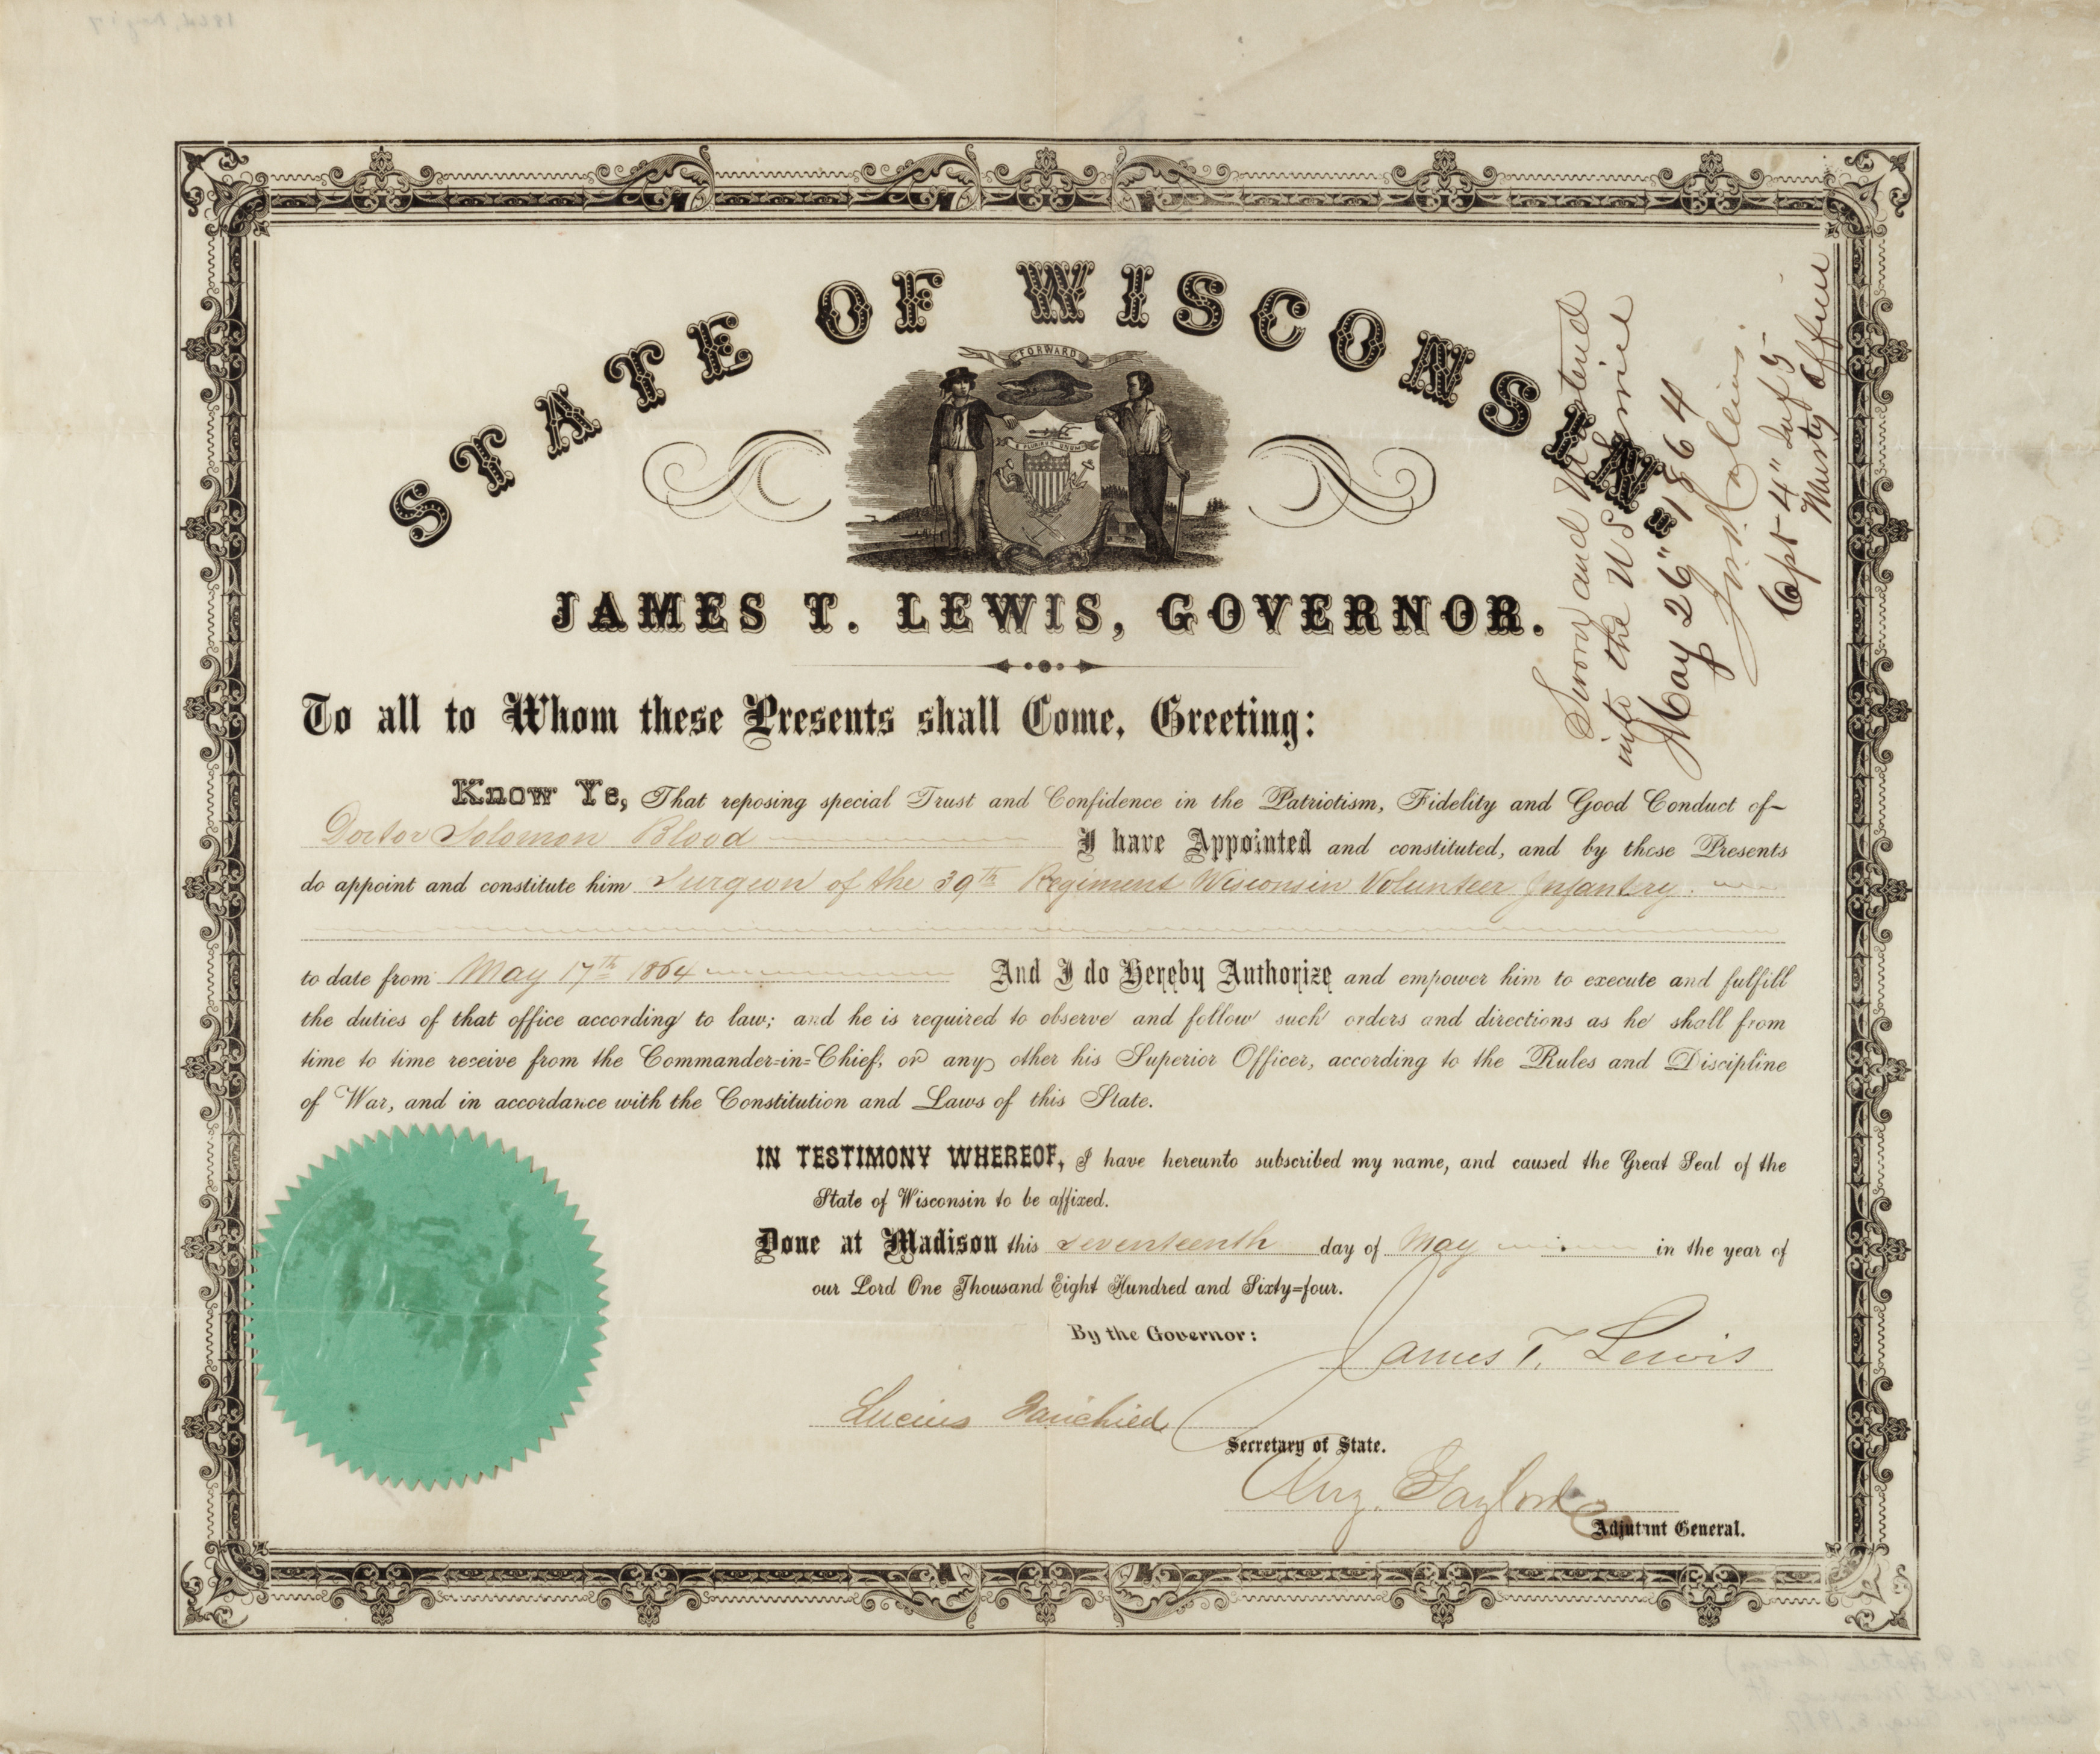 STATE OF WISCONSIN
FORWARD
E PLURIBUS UNUM
JAMES T. LEWIS, GOVERNOR.
To all to Whom these Presents shall Come, Greeting:
Know Ye, That reposing special Trust and Confidence in the Patriotism, Fidelity and Good Conduct of
Doctor Solomon Blood I have Appointed and constituted, and by these Presents
do appoint and constitute him Surgeon of the 39th Regiment Wisconsin Volunteer Infantry.
to date from May 17th 1864 And I do Hereby Authorize and empower him to execute and fulfill
the duties of that office according to law; and he is required to observe and follow such orders and directions as he shall from
time to time receive from the Commander-in-Chief, or any other his Superior Officer, according to the Rules and Discipline
of War, and in accordance with the Constitution and Laws of this State.
IN TESTIMONY WHEREOF, I have hereunto subscribed my name, and caused the Great Seal of the
State of Wisconsin to be affixed.
Done at Madison this seventeenth day of May in the year of
our Lord One Thousand Eight Hundred and Sixty-four.
By the Governor: James T. Lewis
Lucius Fairchild
Secretary of State.
Aug. Gaylord
Adjutant General.
Sworn and Mustered
into the US Service
May 26" 1864
Capt 4" Inf
Mustg Officer